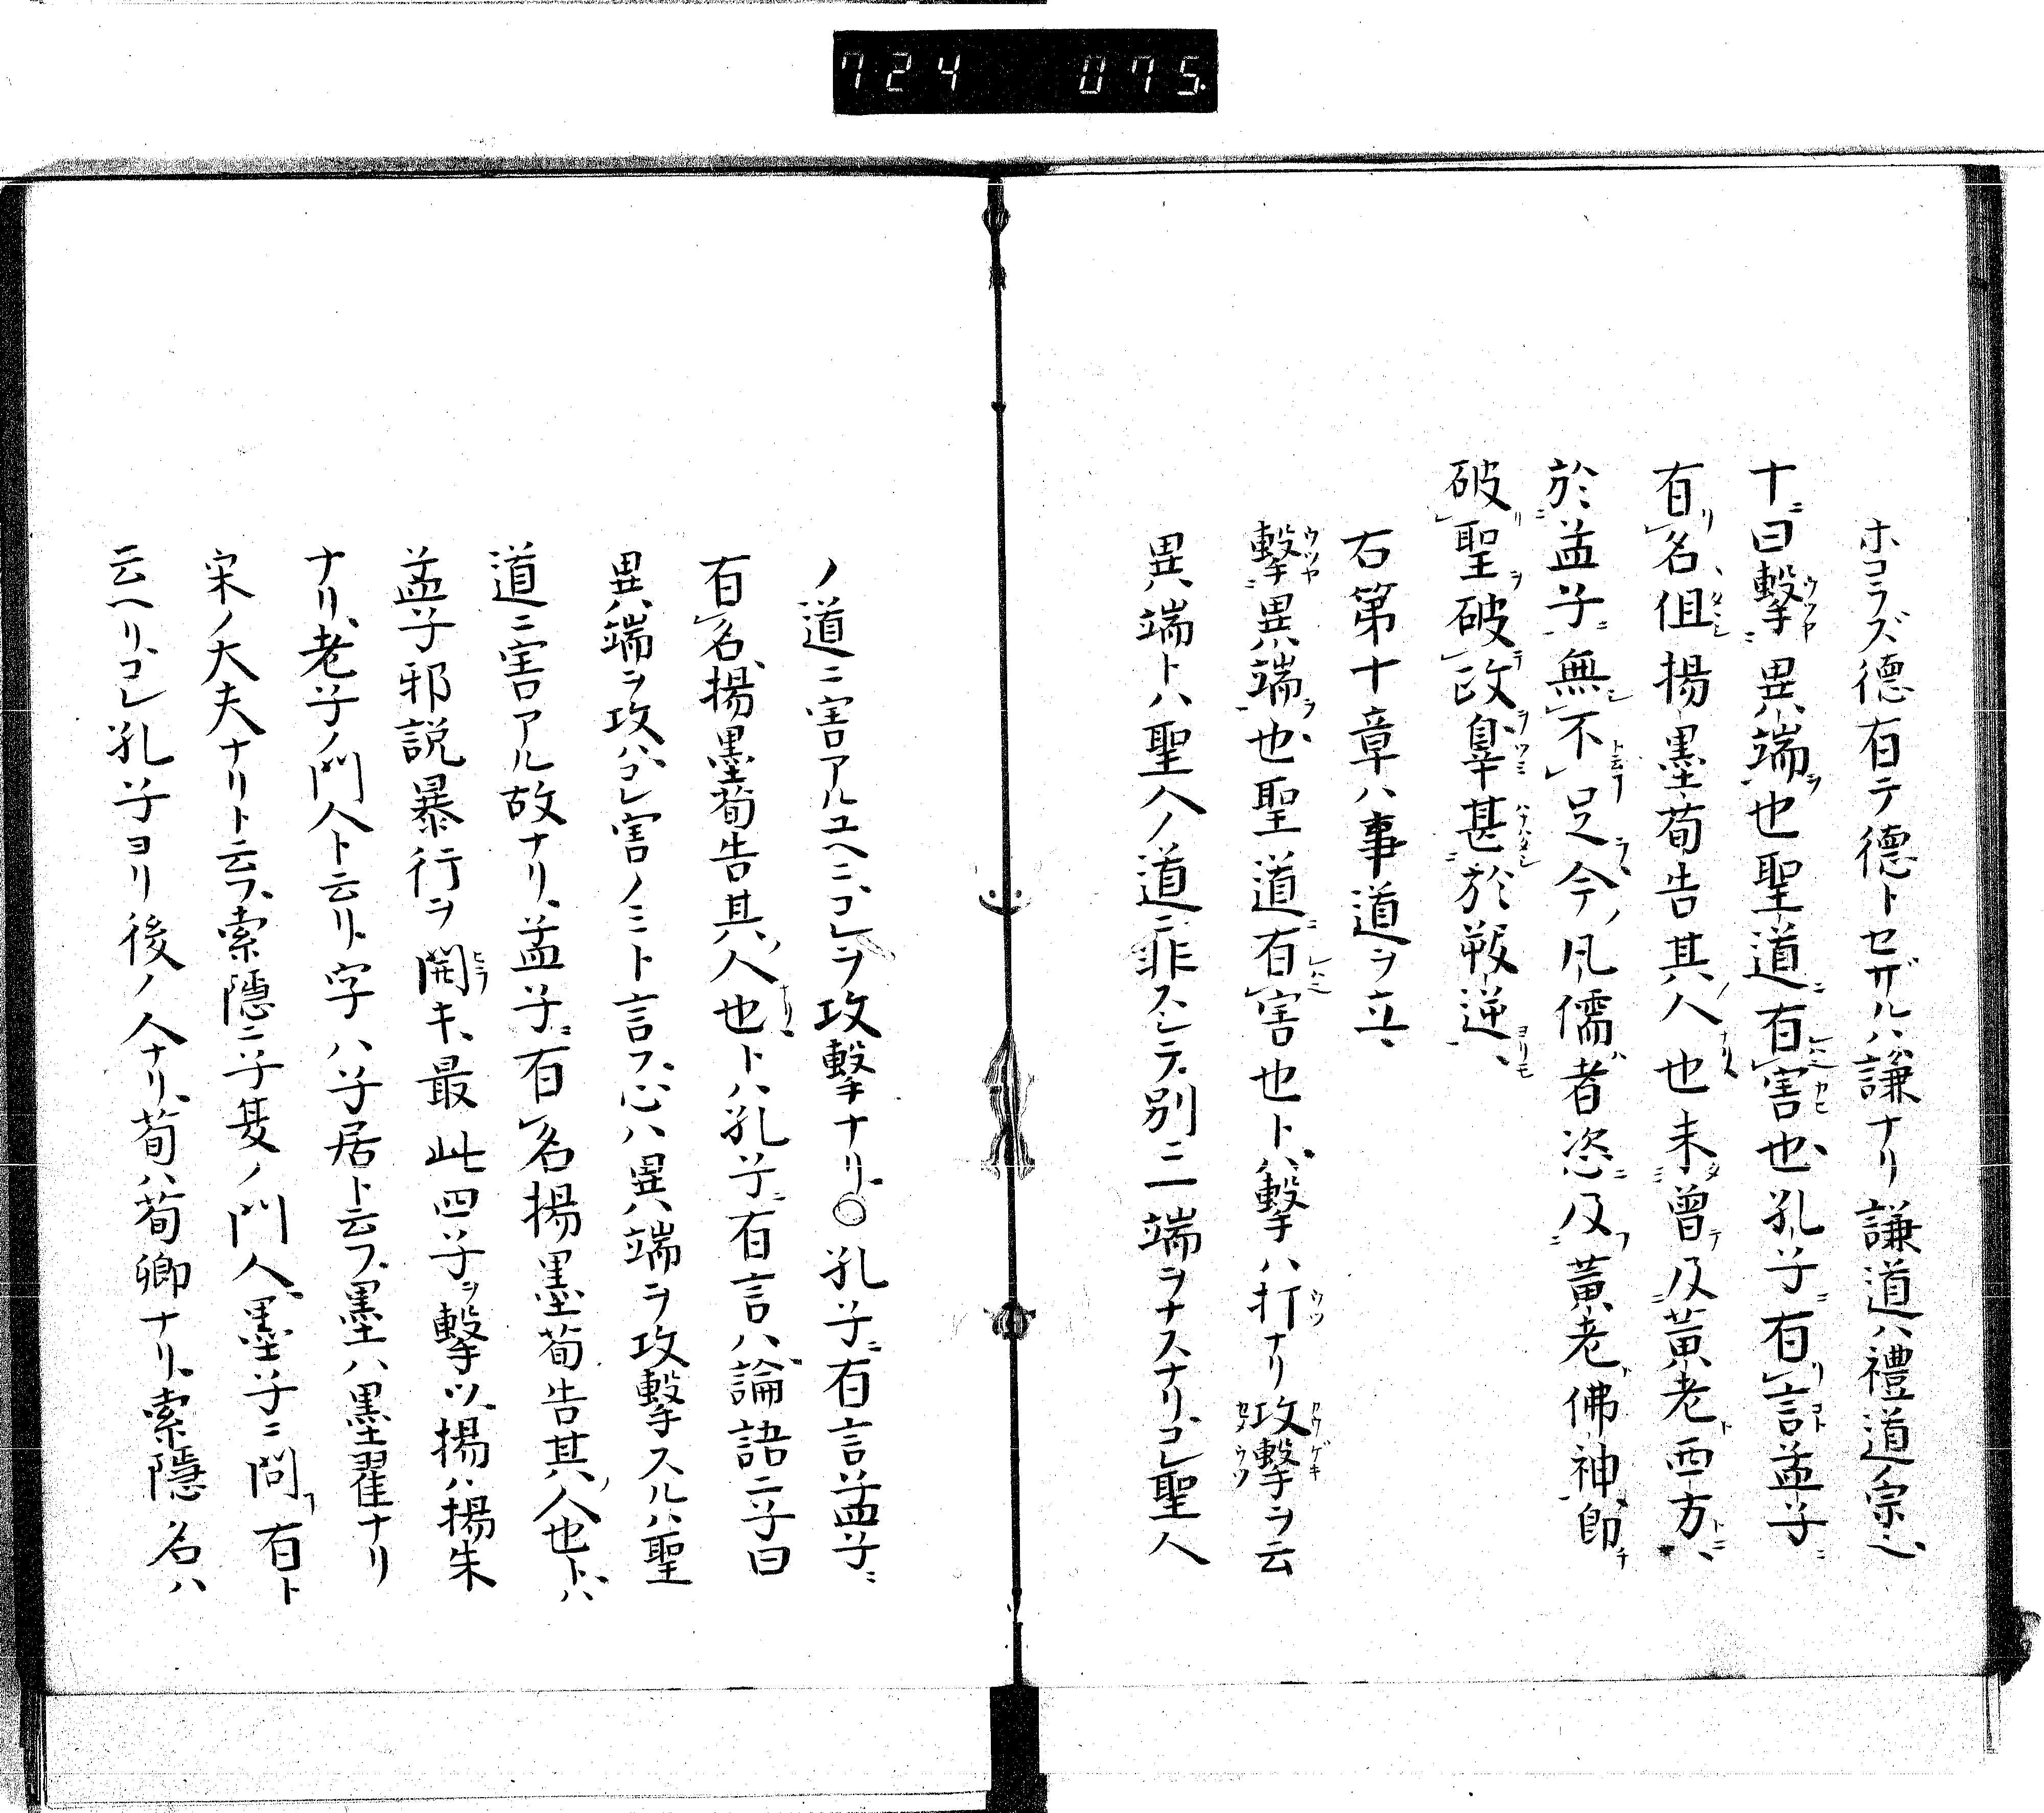 724 075.
ホコラズ德有テ德トセザルハ謙ナリ謙道ハ禮道ノ宗也
十ニ曰擊異端ヲ也聖道ニ有害也、孔子ニ有言孟子ニ
有名但揚墨荀告其人也未曾及黃老西方、
於孟子無不足今ノ凡儒者恣及黃老佛神卽
破聖破政辠甚於叛逆、
右第十章ハ事道ヲ立、
擊異端ヲ也聖道ニ有害也トハ、擊ハ打ナリ攻擊ヲ云
異端トハ聖人ノ道ニ非ズシテ、別ニ一端ヲナスナリ、コレ聖人
ノ道ニ害アルユヘニ、コレヲ攻擊ナリ、○孔子ニ有言孟子ニ
有名、揚墨荀告其人也トハ、孔子ニ有言ハ、論語ニ子曰
異端ヲ攻ハ、コレ害ノミト言フ、心ハ異端ヲ攻擊スルハ、聖
道ニ害アル故ナリ、孟子ニ有名揚墨荀告其ノ人也トハ、
孟子邪説暴行ヲ開キ、最此四子ヲ擊以、揚ハ揚朱
ナリ、老子ノ門人ト云リ、字ハ子居ト云フ、墨ハ墨翟ナリ
宋ノ大夫ナリト云フ、索隱ニ子夏ノ門人、墨子ニ問フ有ト
云ヘリ、コレ孔子ヨリ後ノ人ナリ、荀ハ荀卿ナリ、索隱名ハ